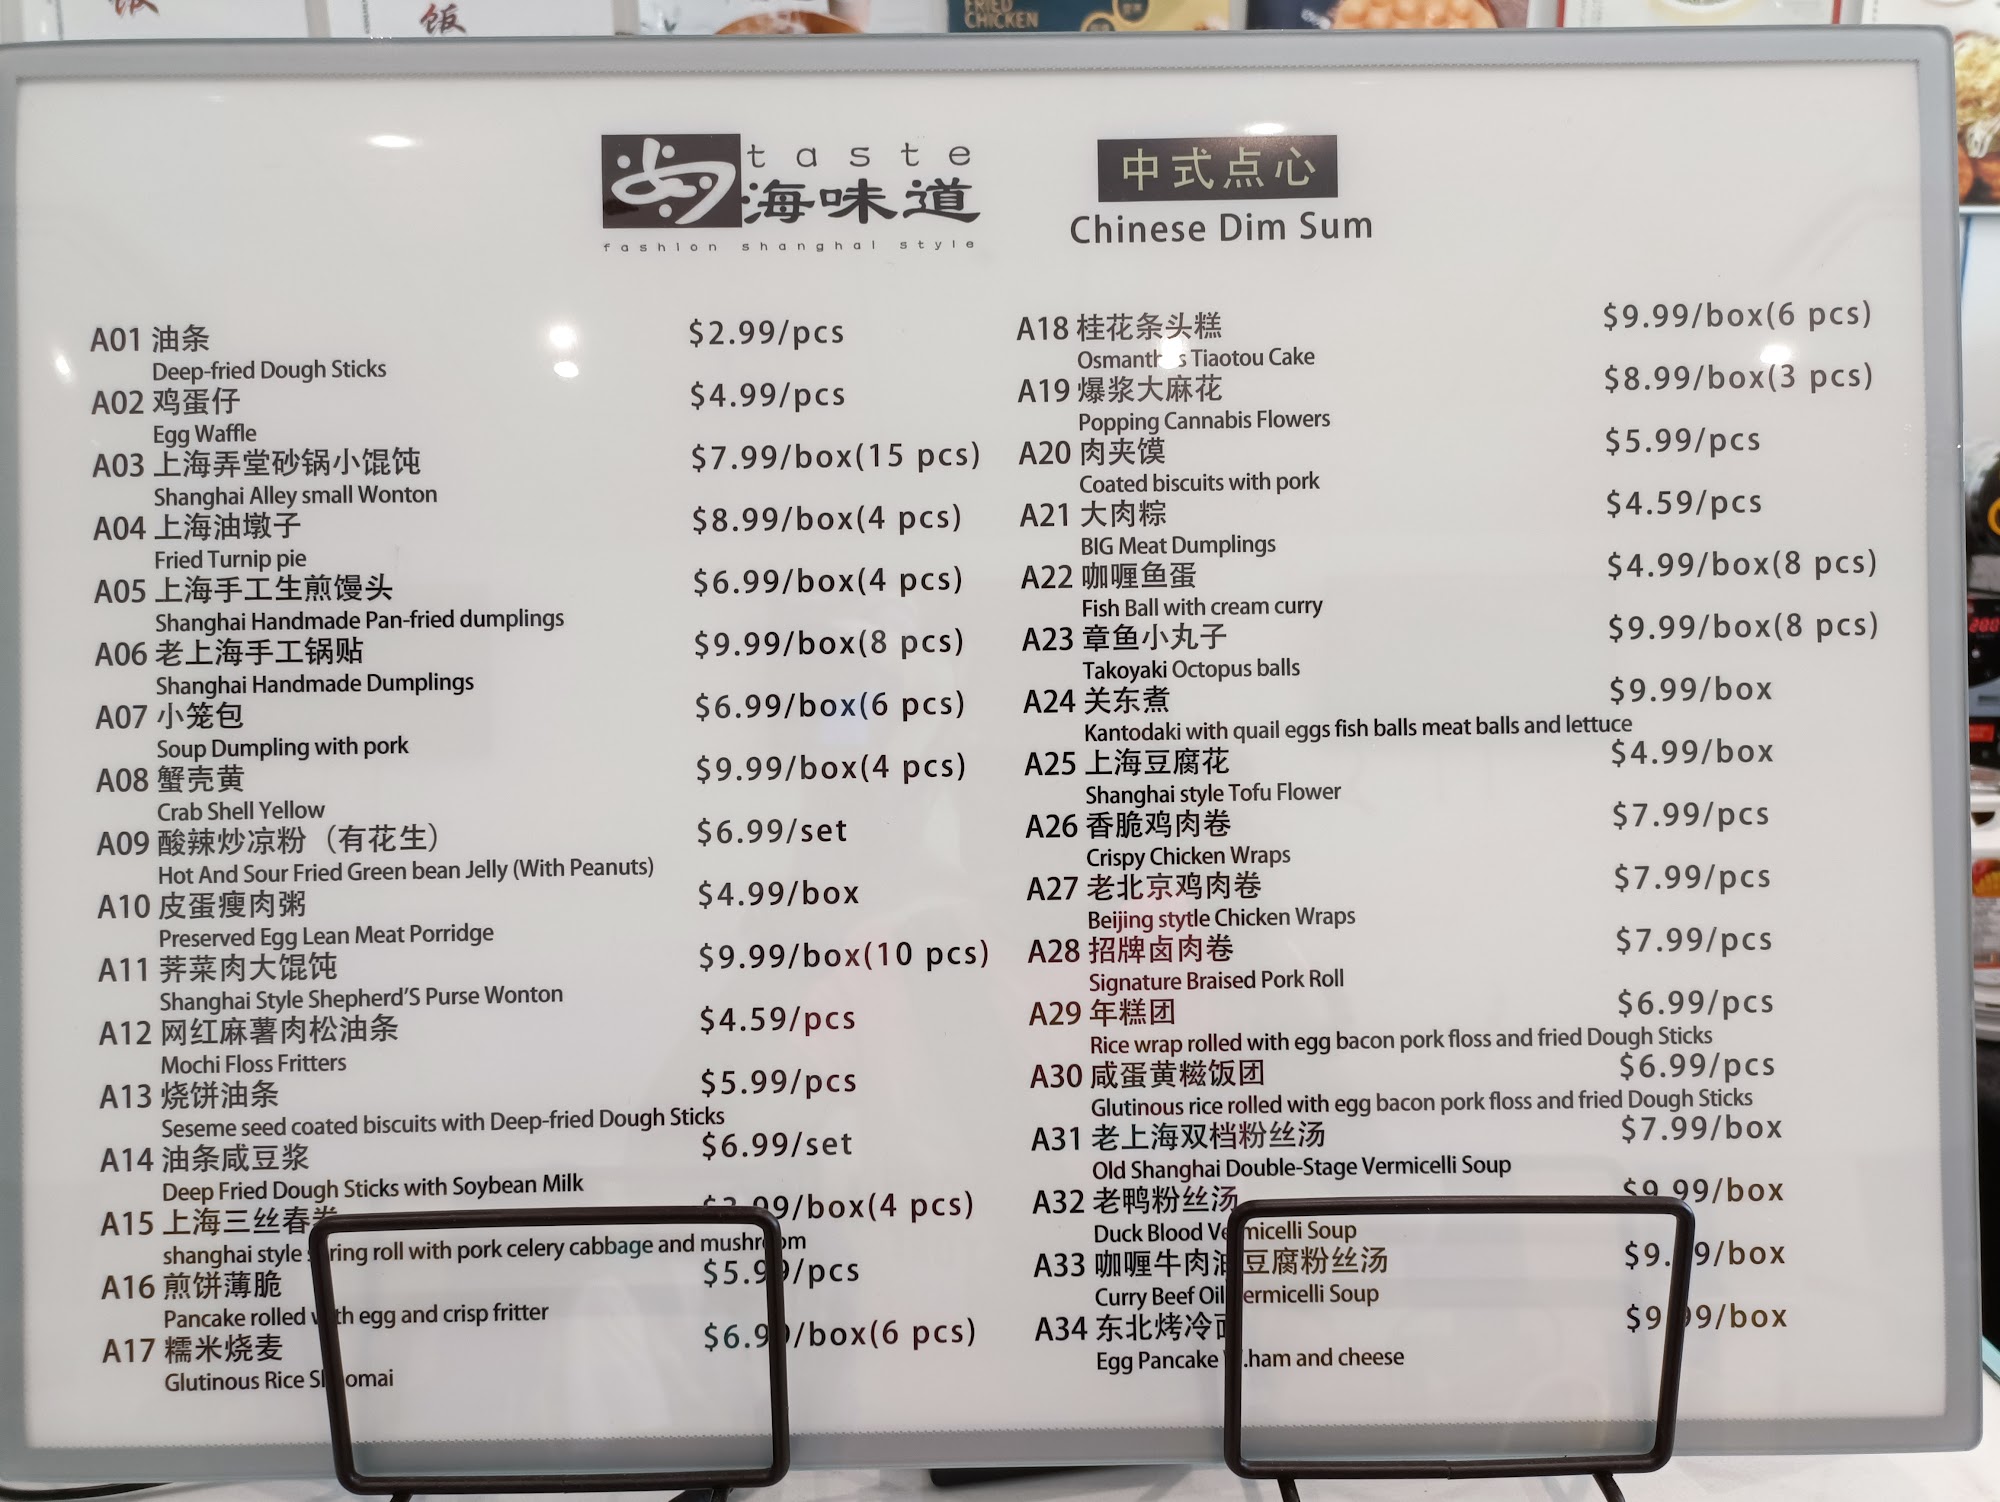 饭
饭
FRIED
CHICKEN
taste
海味道
fashion shanghai style
中式点心
Chinese Dim Sum
A01 油条 $2.99/pcs
Deep-fried Dough Sticks
A02 鸡蛋仔 $4.99/pcs
Egg Waffle
A03 上海弄堂砂锅小馄饨 $7.99/box(15 pcs)
Shanghai Alley small Wonton
A04 上海油墩子 $8.99/box(4 pcs)
Fried Turnip pie
A05 上海手工生煎馒头 $6.99/box(4 pcs)
Shanghai Handmade Pan-fried dumplings
A06 老上海手工锅贴 $9.99/box(8 pcs)
Shanghai Handmade Dumplings
A07 小笼包 $6.99/box(6 pcs)
Soup Dumpling with pork
A08 蟹壳黄 $9.99/box(4 pcs)
Crab Shell Yellow
A09 酸辣炒凉粉（有花生） $6.99/set
Hot And Sour Fried Green bean Jelly (With Peanuts)
A10 皮蛋瘦肉粥 $4.99/box
Preserved Egg Lean Meat Porridge
A11 荠菜肉大馄饨 $9.99/box(10 pcs)
Shanghai Style Shepherd'S Purse Wonton
A12 网红麻薯肉松油条 $4.59/pcs
Mochi Floss Fritters
A13 烧饼油条 $5.99/pcs
Seseme seed coated biscuits with Deep-fried Dough Sticks
A14 油条咸豆浆 $6.99/set
Deep Fried Dough Sticks with Soybean Milk
A15 上海三丝春卷 /box(4 pcs)
shanghai style spring roll with pork celery cabbage and mushroom
A16 煎饼薄脆 $5.99/pcs
Pancake rolled with egg and crisp fritter
A17 糯米烧麦 $6.99/box(6 pcs)
Glutinous Rice Shaomai
A18 桂花条头糕 $9.99/box(6 pcs)
Osmanthus Tiaotou Cake
A19 爆浆大麻花 $8.99/box(3 pcs)
Popping Cannabis Flowers
A20 肉夹馍 $5.99/pcs
Coated biscuits with pork
A21 大肉粽 $4.59/pcs
BIG Meat Dumplings
A22 咖喱鱼蛋 $4.99/box(8 pcs)
Fish Ball with cream curry
A23 章鱼小丸子 $9.99/box(8 pcs)
Takoyaki Octopus balls
A24 关东煮 $9.99/box
Kantodaki with quail eggs fish balls meat balls and lettuce
A25 上海豆腐花 $4.99/box
Shanghai style Tofu Flower
A26 香脆鸡肉卷 $7.99/pcs
Crispy Chicken Wraps
A27 老北京鸡肉卷 $7.99/pcs
Beijing stytle Chicken Wraps
A28 招牌卤肉卷 $7.99/pcs
Signature Braised Pork Roll
A29 年糕团 $6.99/pcs
Rice wrap rolled with egg bacon pork floss and fried Dough Sticks
A30 咸蛋黄糍饭团 $6.99/pcs
Glutinous rice rolled with egg bacon pork floss and fried Dough Sticks
A31 老上海双档粉丝汤 $7.99/box
Old Shanghai Double-Stage Vermicelli Soup
A32 老鸭粉丝汤 $9.99/box
Duck Blood Vermicelli Soup
A33 咖喱牛肉油豆腐粉丝汤 $9.99/box
Curry Beef Oil Vermicelli Soup
A34 东北烤冷面 $9.99/box
Egg Pancake W.ham and cheese